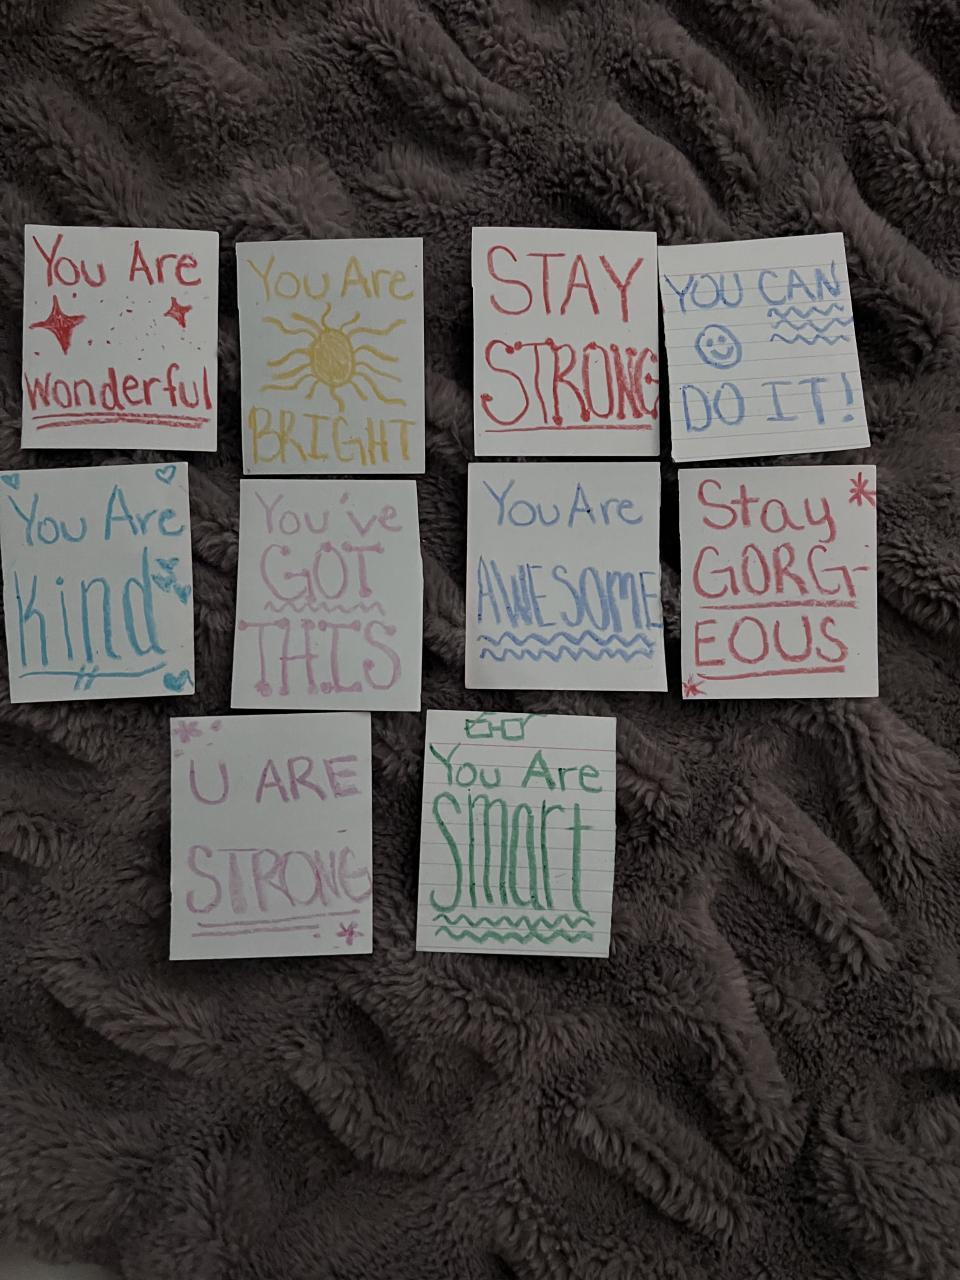 You Are
Wonderful
You Are
BRIGHT
STAY
STRONG
YOU CAN
DO IT!
You Are
Kind
You've
GOT
THIS
You Are
AWESOME
Stay
GORG-
EOUS
U ARE
STRONG
You Are
Smart